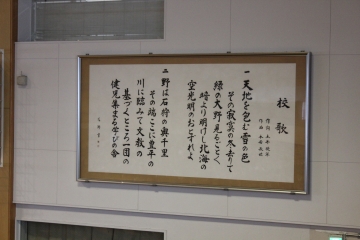 校歌
一 天地を包む雪の色
その寂寞の冬去りて
緑の大野見るごとく
時より明けし北海の
空光明のおとずれよ
二 野は石狩の奥千里
その端ここに豊平の
川に臨みて文教の
基づくところ一団の
健児集まる学びの舎